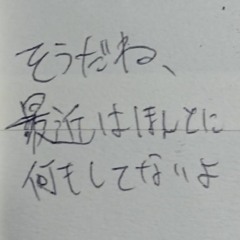 そうだね、
最近はほんとに
何もしてないよ